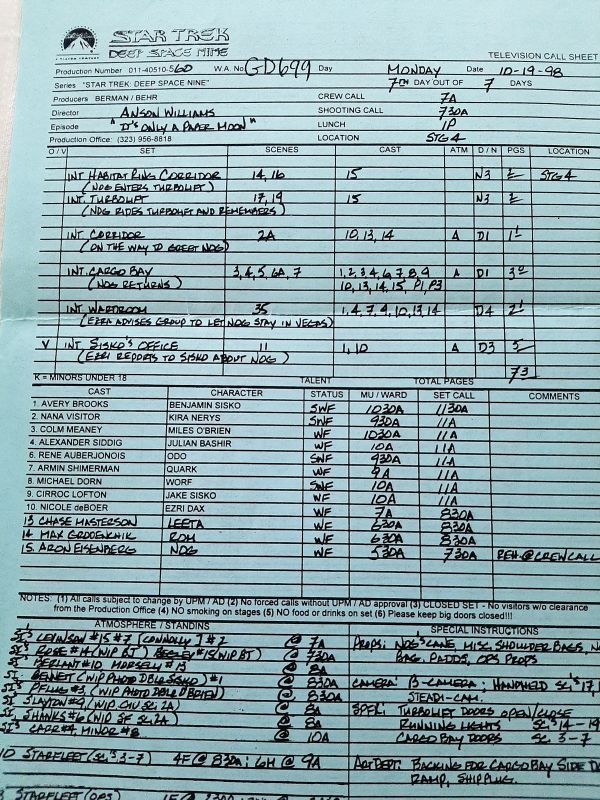 STAR TREK
DEEP SPACE NINE
TELEVISION CALL SHEET
Production Number 011-40510-560 W.A. No GD699 Day MONDAY Date 10-19-98
Series "STAR TREK: DEEP SPACE NINE" 7TH DAY OUT OF 7 DAYS
Producers BERMAN / BEHR CREW CALL 7A
Director ANSON WILLIAMS SHOOTING CALL 730A
Episode "IT'S ONLY A PAPER MOON" LUNCH 1P
Production Office: (323) 956-8818 LOCATION STG 4
O / V SET SCENES CAST ATM D / N PGS LOCATION
INT. HABITAT RING CORRIDOR 14, 16 15 N3 STG 4
(NOG ENTERS TURBOLIFT)
INT. TURBOLIFT 17, 19 15 N3
(NOG RIDES TURBOLIFT AND REMEMBERS)
INT. CORRIDOR 2A 10, 13, 14 A D1
(ON THE WAY TO GREET NOG)
INT. CARGO BAY 3, 4, 5, 6A, 7 1, 2, 3, 4, 6, 7, 8, 9 A D1
(NOG RETURNS) 10, 13, 14, 15, P1, P3
INT. WARDROOM 35 1, 4, 7, 9, 10, 13, 14 D4
(EZRI ADVISES GROUP TO LET NOG STAY IN VEGAS)
V INT. SISKO'S OFFICE 11 1, 10 A D3
(EZRI REPORTS TO SISKO ABOUT NOG)
K = MINORS UNDER 18 TALENT TOTAL PAGES
CAST CHARACTER STATUS MU / WARD SET CALL COMMENTS
1. AVERY BROOKS BENJAMIN SISKO SWF 1030A 1130A
2. NANA VISITOR KIRA NERYS SWF 930A 11A
3. COLM MEANEY MILES O'BRIEN WF 1030A 11A
4. ALEXANDER SIDDIG JULIAN BASHIR WF 10A 11A
6. RENE AUBERJONOIS ODO SWF 930A 11A
7. ARMIN SHIMERMAN QUARK WF 9A 11A
8. MICHAEL DORN WORF SWF 10A 11A
9. CIRROC LOFTON JAKE SISKO WF 10A 11A
10. NICOLE deBOER EZRI DAX WF 7A 830A
13 CHASE MASTERSON LEETA WF 630A 830A
14 MAX GRODENCHIK ROM WF 630A 830A
15. ARON EISENBERG NOG WF 530A 730A REH. @ CREW CALL
NOTES: (1) All calls subject to change by UPM / AD (2) No forced calls without UPM / AD approval (3) CLOSED SET - No visitors w/o clearance
from the Production Office (4) NO smoking on stages (5) NO food or drinks on set (6) Please keep big doors closed!!!
ATMOSPHERE / STANDINS SPECIAL INSTRUCTIONS
LEVINSON #15 #7 (CONNOLLY) #2 @ 7A PROPS: NOG'S CANE, MISC. SHOULDER BAGS,
ROSE #14 (WIP BJ) BEGLEY #15 (WIP BT) @ BAG, PADDS, OPS PROPS
BERLANT #10, MORSELL #13 @ 8A
BENNETT (WIP PHOTO DBL SISKO) #1 @ 830A CAMERA: B-CAMERA; HANDHELD SC'S 17,
PFLUG #3 (WIP PHOTO DBL O'BRIEN) @ 830A STEADI-CAM
SLAYTON #9 (WIP CIV SC. 2A) @ 8A SPFX: TURBOLIFT DOORS OPEN/CLOSE
SHANKS #6 (WIP SF SC. 2A) @ 8A RUNNING LIGHTS SC'S 14-19
CARR #4, MINOR #8 @ 10A CARGO BAY DOORS SC. 3-7
10 STARFLEET (SC'S 3-7) 4F @ 830A; 6M @ 9A ART DEPT: BACKING FOR CARGO BAY SIDE
RAMP, SHIP PLUG.
STARFLEET (OPS)